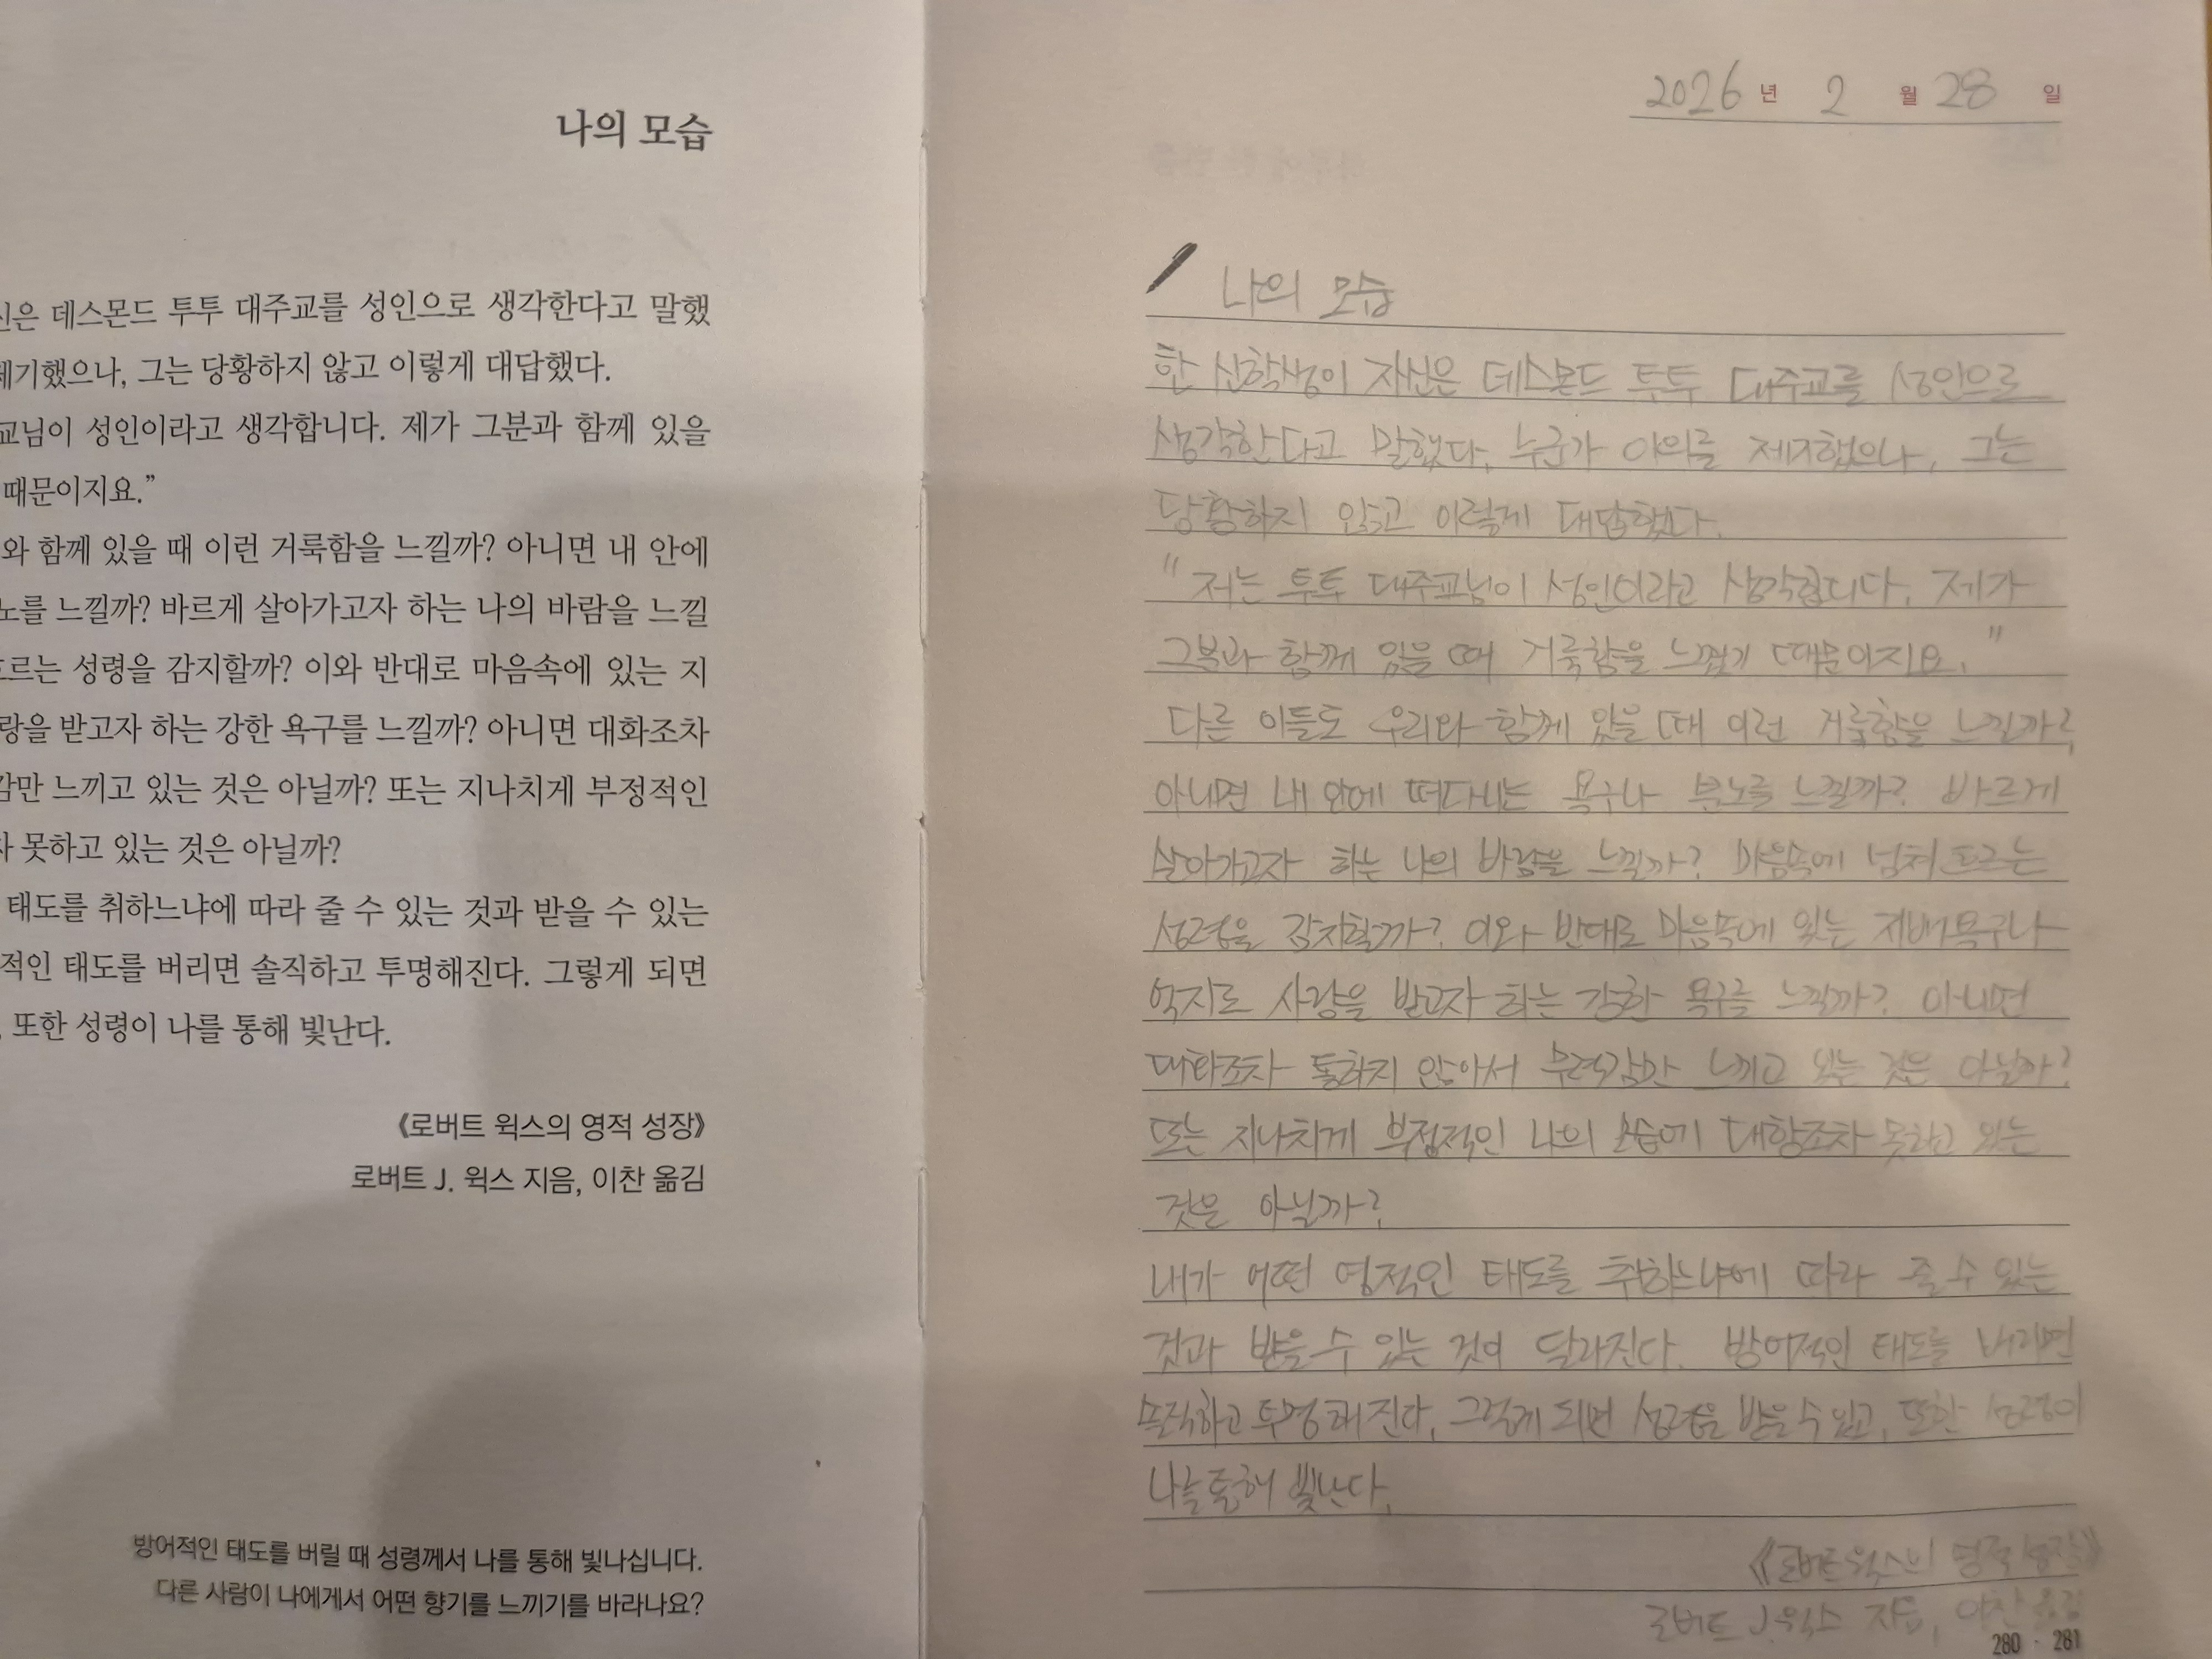 나의 모습
신은 데스몬드 투투 대주교를 성인으로 생각한다고 말했
제기했으나, 그는 당황하지 않고 이렇게 대답했다.
교님이 성인이라고 생각합니다. 제가 그분과 함께 있을
때문이지요.”
와 함께 있을 때 이런 거룩함을 느낄까? 아니면 내 안에
노를 느낄까? 바르게 살아가고자 하는 나의 바람을 느낄
흐르는 성령을 감지할까? 이와 반대로 마음속에 있는 지
랑을 받고자 하는 강한 욕구를 느낄까? 아니면 대화조차
감만 느끼고 있는 것은 아닐까? 또는 지나치게 부정적인
차 못하고 있는 것은 아닐까?
태도를 취하느냐에 따라 줄 수 있는 것과 받을 수 있는
적인 태도를 버리면 솔직하고 투명해진다. 그렇게 되면
, 또한 성령이 나를 통해 빛난다.
《로버트 윅스의 영적 성장》
로버트 J. 윅스 지음, 이찬 옮김
방어적인 태도를 버릴 때 성령께서 나를 통해 빛나십니다.
다른 사람이 나에게서 어떤 향기를 느끼기를 바라나요?
2026 년 2 월 28 일
나의 모습
한 신학생이 자신은 데스몬드 투투 대주교를 성인으로
생각한다고 말했다. 누군가 이의를 제기했으나, 그는
당황하지 않고 이렇게 대답했다.
"저는 투투 대주교님이 성인이라고 생각합니다. 제가
그분과 함께 있을 때 거룩함을 느꼈기 때문이지요."
다른 이들도 우리와 함께 있을 때 이런 거룩함을 느낄까?
아니면 내 안에 떠다니는 욕구나 분노를 느낄까? 바르게
살아가고자 하는 나의 바람을 느낄까? 마음속에 넘쳐 흐르는
성령을 감지할까? 이와 반대로 마음속에 있는 지배욕구나
억지로 사랑을 받고자 하는 강한 욕구를 느낄까? 아니면
대화조차 통하지 않아서 무력감만 느끼고 있는 것은 아닐까?
또는 지나치게 부정적인 나의 모습에 대항조차 못하고 있는
것은 아닐까?
내가 어떤 영적인 태도를 취하느냐에 따라 줄 수 있는
것과 받을 수 있는 것이 달라진다. 방어적인 태도를 버리면
솔직하고 투명해진다. 그렇게 되면 성령을 받을 수 있고, 또한 성령이
나를 통해 빛난다.
《로버트 윅스의 영적 성장》
로버트 J. 윅스 지음, 이찬 옮김
280 · 281